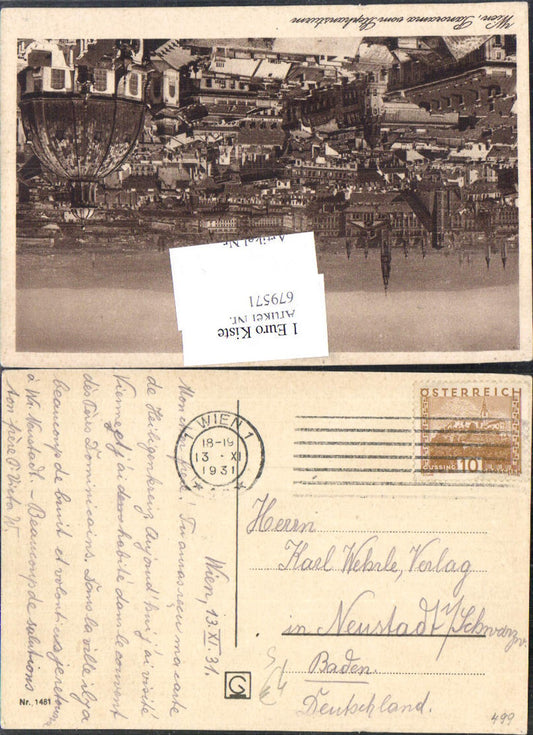 Wien, Panorama vom Stephansturm
1 Euro Kiste
Artikel Nr.
679571
Artikel Nr.
WIEN 1
18-19
13. XI
1931
ÖSTERREICH
GÜSSING
10
Wien, 13.XI.31.
Mon cher frère! Tu auras reçu ma carte
de Heiligenkreuz. Aujourd'hui j'ai visité
Vienne et j'ai habité dans le couvent
des Pères Dominicains. Dans la ville il y a
beaucoup de bruit et volontiers je retourne
à Wr. Neustadt. - Beaucoup de salutions
ton frère P. Vito W.
Herrn
Karl Wehrle, Verlag
in Neustadt i/Schwarzw.
Baden.
Deutschland.
G
Nr. 1481
499